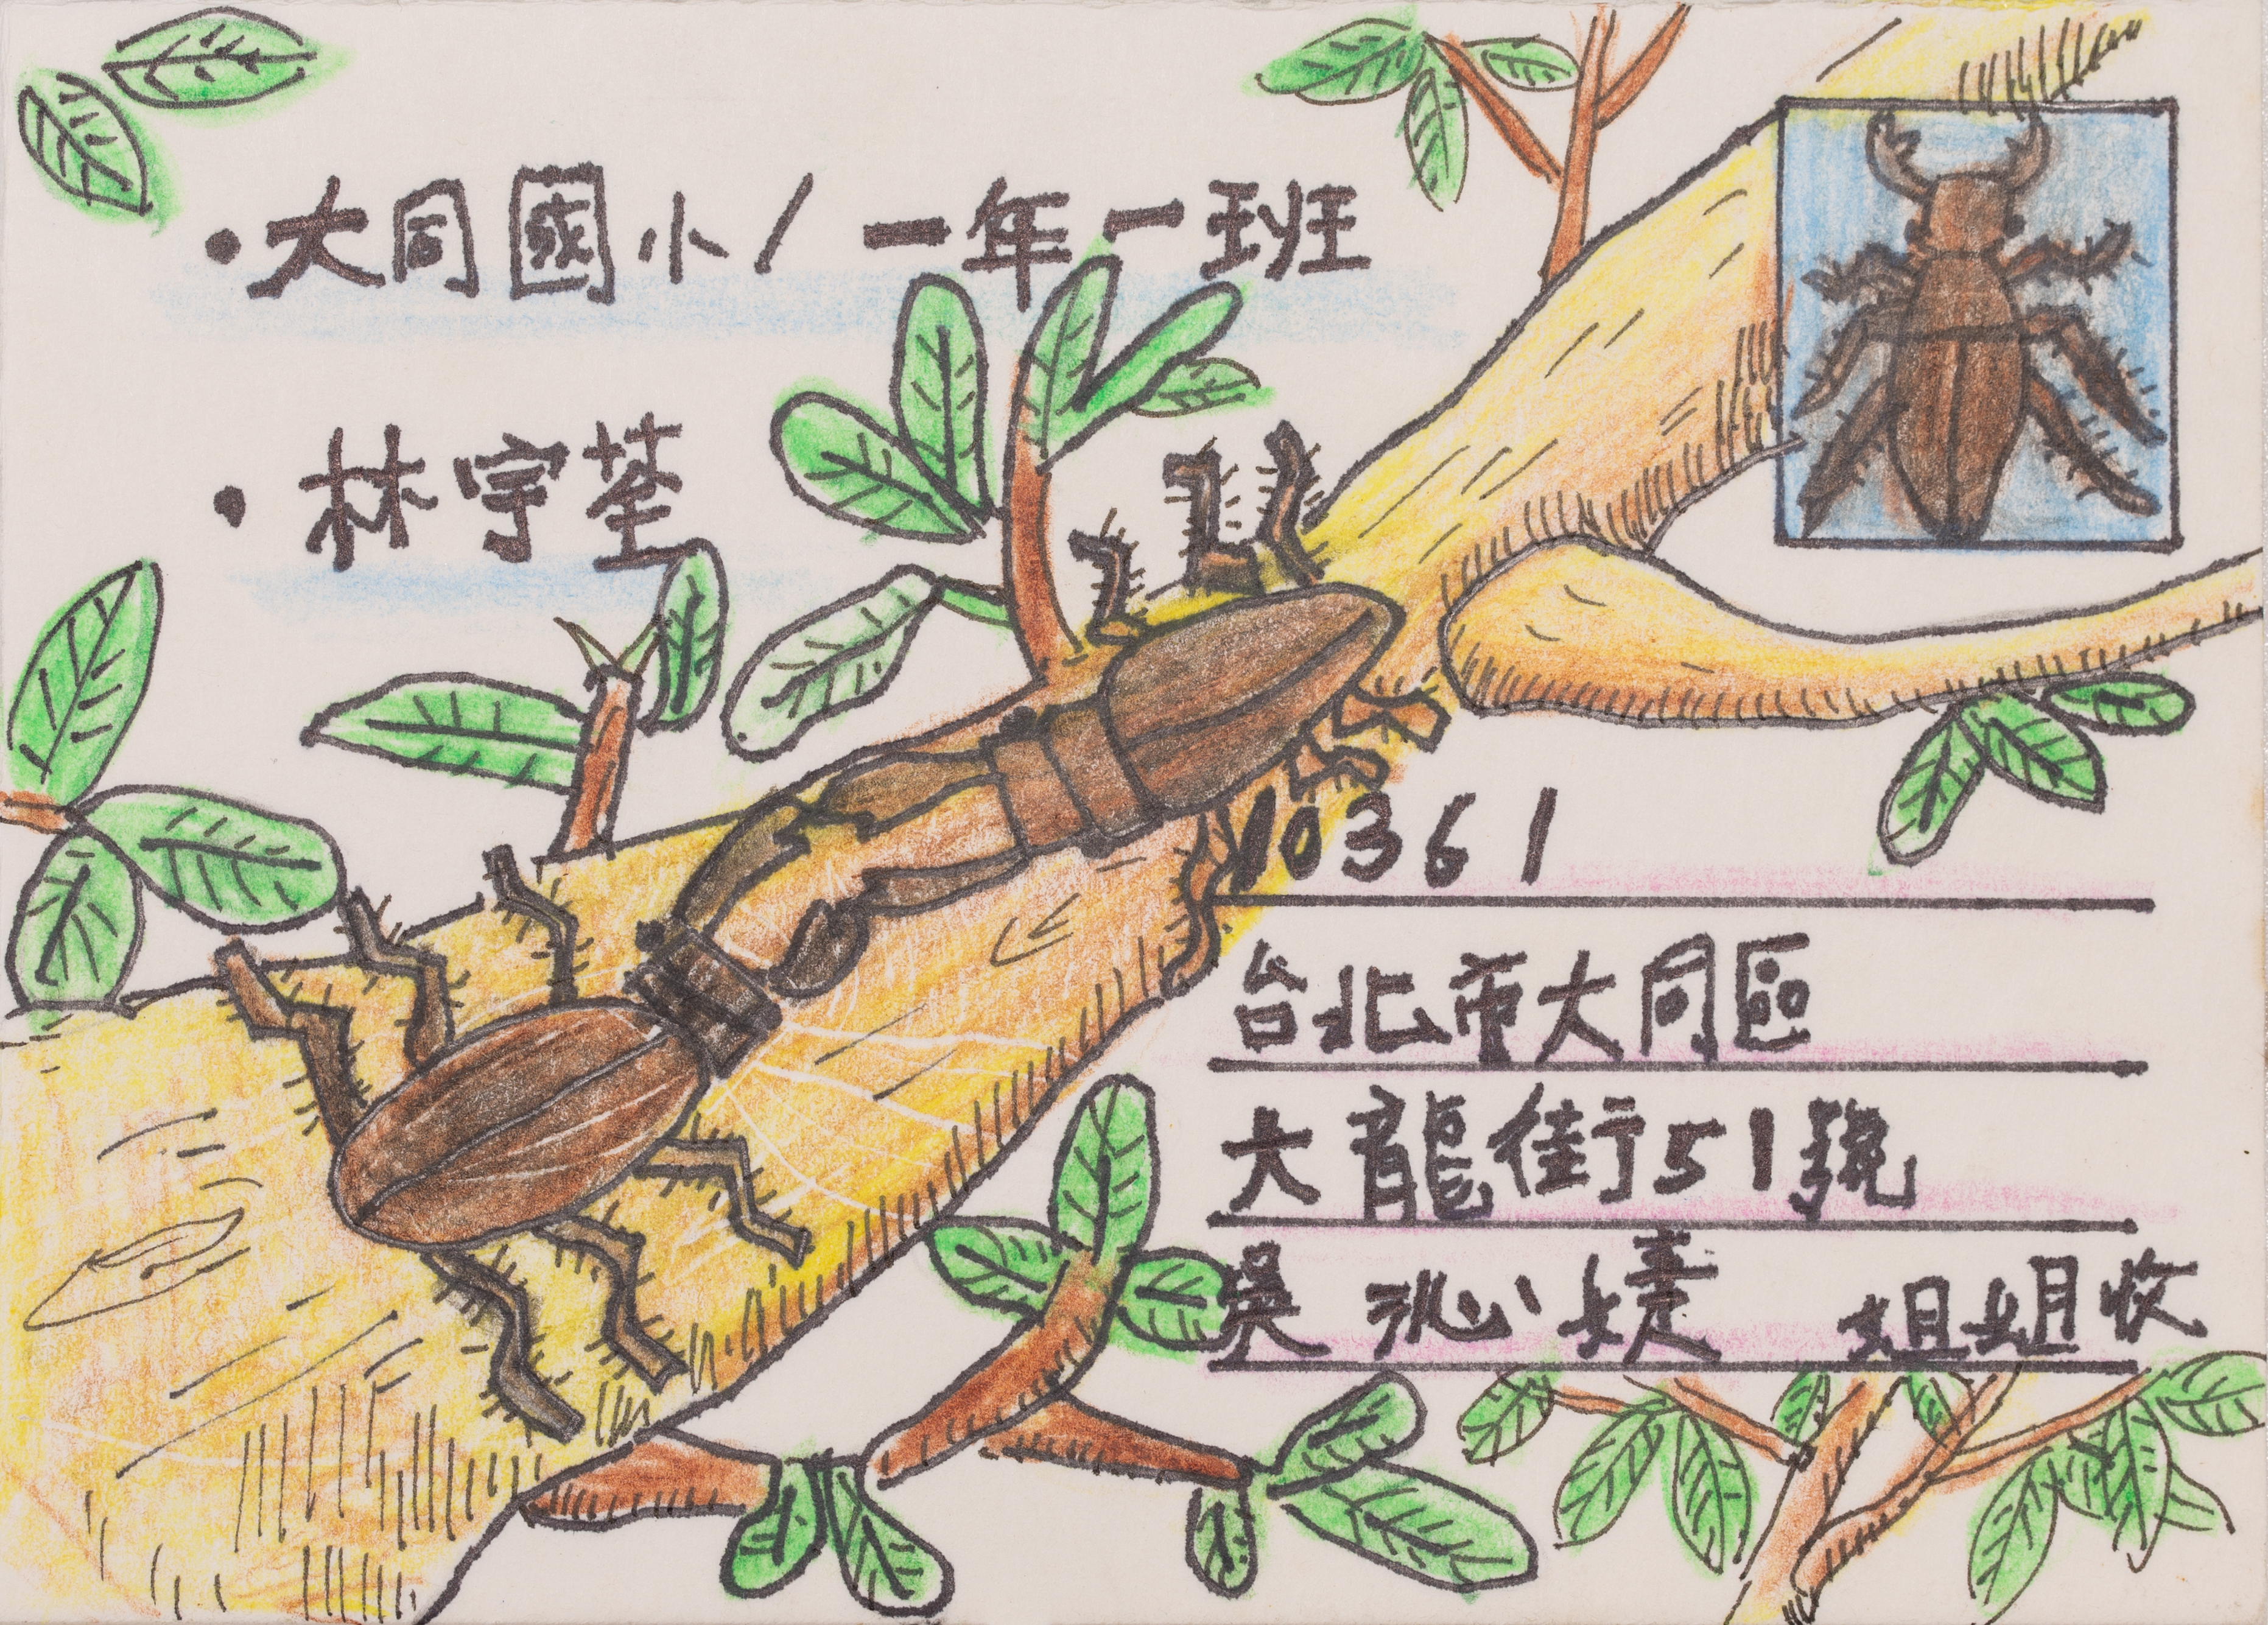 ·大同國小/一年一班
·林宇荃
10361
台北市大同區
大龍街51號
吳沁婕 姐姐收